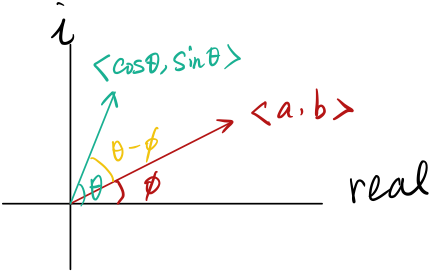 i
<cosθ, sinθ>
<a, b>
θ-ϕ
θ
ϕ
real